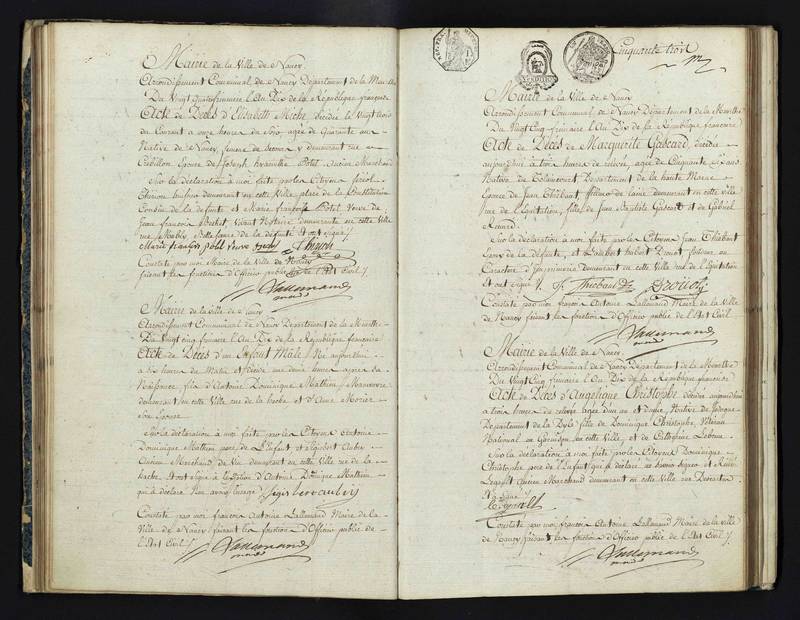 Mairie de la Ville de Nancy.
Arrondissement Communal de Nancy Département de la Meurthe
Du Vingt quatre frimaire l'An Dix de la République française
Acte de Décès d'Elisabeth décédée le Vingt trois
du Courant à onze heures du Soir, agée de Quarante
Native de Nancy, demeurant rue
Epouse de Joseph
Sur la déclaration à moi faite par les Citoyens
demeurant en cette Ville place de la Constitution
Cousin de la défunte et Marie françoise Veuve de
Jean françois vivant Notaire demeurante en cette Ville
rue Belle Soeur de la défunte et ont signé ./.
Marie françoise veuve
Constaté par moi Maire de la Ville de Nancy
faisant les fonctions d'Officier public de l'Etat Civil ./.
Lallemand
maire
Mairie de la Ville de Nancy
Arrondissement Communal de Nancy Département de la Meurthe
Du Vingt cinq frimaire l'An Dix de la République française
Acte de Décès d'un Enfant Male, Né aujourd'hui
à six heures du Matin et décédé une demie heure après sa
Naissance, fils d'Antoine Dominique Mathieu Manoeuvre
demeurant en cette Ville rue de la hache et d'Anne
Son Epouse
Sur la déclaration à moi faite par les Citoyens Antoine
Dominique Mathieu père de l'Enfant et
Ancien Marchand de Vin demeurant en cette Ville rue de la
hache et ont signé à l'exception d'Antoine Dominique Mathieu
qui a déclaré n'en avoir l'usage
Constaté par moi françois Antoine Lallemand Maire de la
Ville de Nancy faisant les fonctions d'Officier public de
l'Etat Civil ./.
Lallemand
maire
Cinquante trois
Mairie de la Ville de Nancy
Arrondissement Communal de Nancy Département de la Meurthe
Du Vingt Cinq frimaire l'An Dix de la République française
Acte de Décès de Marguerite Gascard, décédée
aujourd'hui à trois heures de relevée, agée de Cinquante Six ans
Native de Département de la haute Marne
Epouse de Jean Thiébaut, fileur de laine demeurant en cette Ville
rue de l'Equitation, fille de Jean Baptiste Gascard et de Gabriel
Sur la déclaration à moi faite par les Citoyens Jean Thiébaut
Epoux de la défunte, et Lambert hubert Drouot fondeur en
Caractere d'Imprimerie demeurant en cette Ville rue de l'Equitation
et ont signé ./. Thiebaut Drouot
Constaté par moi françois Antoine Lallemand Maire de la Ville
de Nancy faisant les fonctions d'Officier public de l'Etat Civil
Lallemand
maire
Mairie de la Ville de Nancy.
Arrondissement Communal de Nancy Département de la Meurthe
Du Vingt Cinq frimaire l'An Dix de la République française
Acte de Décès d'Angelique Christophe, décédée aujourd'hui
à trois heures de relevée agée d'un an et demi, Native de
Département de la Dyle fille de Dominique Christophe, Vétéran
National en Garnison en cette Ville, et de Catherine
Sur la déclaration à moi faite par les Citoyens Dominique
Christophe père de l'Enfant qui a déclaré ne savoir signer et
Ancien Marchand demeurant en cette Ville rue
et a signé ./.
Constaté par moi françois Antoine Lallemand Maire de la Ville
de Nancy faisant les fonctions d'Officier public de l'Etat Civil ./.
Lallemand
maire